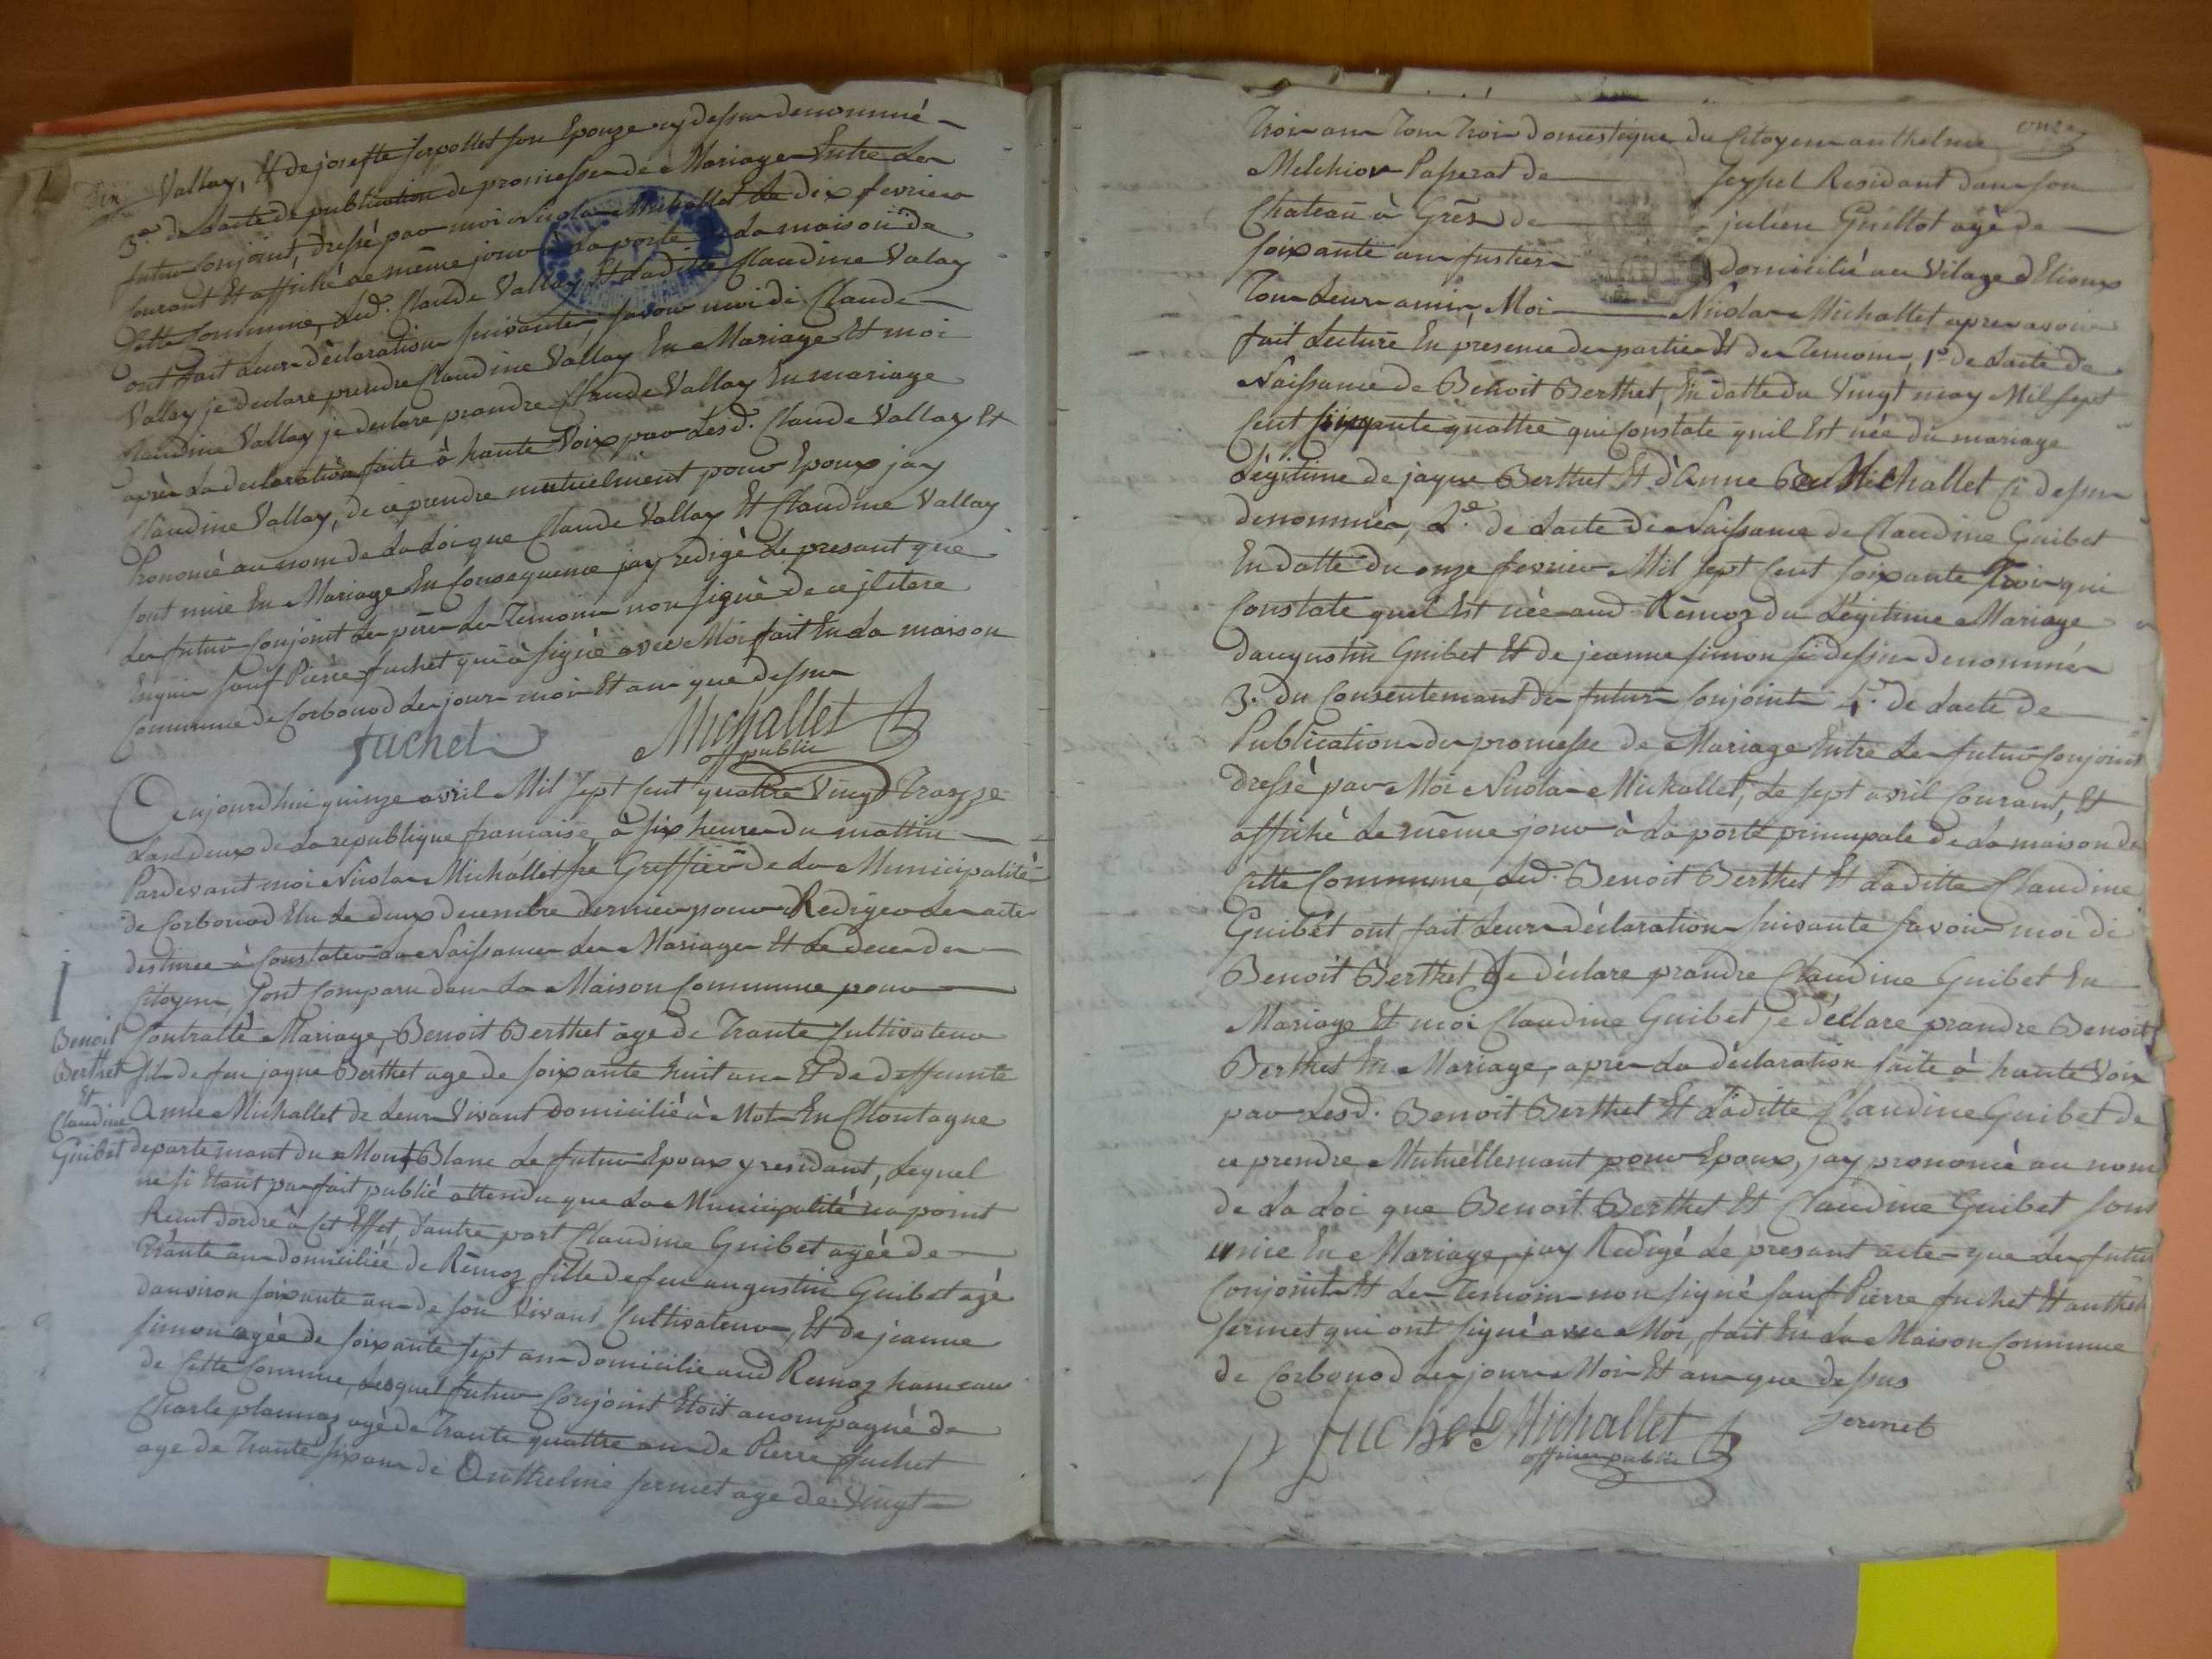 dix
Vallay, Et de josefte Serpollet son Epouze cy dessu denommé
3.e de Lacte de publication de promesse de Mariage Entre Les
futur Conjoint, dressé par moi Nicolas Michallet Le dix fevrier
Courant Et affiché Le même jour à La porte de La maison de
Cette Commune, Led. Claude Vallay Et Laditte Claudine Valay
ont fait Leurs déclaration suivante, savoir moi di Claude
Valay je declare prendre Claudine Vallay En Mariage Et moi
Claudine Vallay je declare prandre Claude Vallay En mariage
après La declaration faite à haute Voix par Lesd. Claude Vallay Et
Claudine Vallay, de ce prendre mutuelment pour Epoux jay
Prononcé au nom de La Loi que Claude Vallay Et Claudine Vallay
sont unie En Mariage En Consequence jay redigé Le presant que
Les futur Conjoint Les père Les Temoins non signé de ce
Enquis sauf Pierre fuchet qui à signé avec Moi fait En La maison
Commune de Corbonod Les jour moi Et an que dessu
fuchet Michallet
off public
Aujourdhui quinze avril Mil sept Cent quattre Vingt Trazze
Lan deux de La republique francaise, à six heures du mattin
Pardevant moi Nicolas Michallet Greffier de La Municipalité
de Corbonod Elu Le deux decembre dernier pour Rediger Les acte
destinée à Constater La Naissance Les Mariages Et Le deces des
Citoyens Sont Comparu dans La Maison Commune pour
Contratté Mariage, Benoit Berthet age de Trante Cultivateur
Benoit
Berthet
Et
Claudine
Guibet
fils de feu jaque Berthet age de soixante huit ans Et de deffunte
Anne Michallet de Leurs Vivant domicilié à Mot En Chontagne
departemant du Mont Blanc Le futur Epoux y residant, Lequel
ne si Etant pas fait publié attendu que La Municipalité na point
Recut dordre à Cet Effet, dautre part Claudine Guibet agée de
Trante ans domiciliée de Rèmoz fille de feu augustin Guibet agé
danviron soixante ans de son Vivant Cultivateur, Et de jeanne
simon agée de soixante sept ans domicilie aud Remoz hameau
de Cette Commune, Lesquel futur Conjoint Etoit acompagné de
Charle plannaz agé de Trante quattre ans de Pierre fuchet
age de Trante six ans de Anthelme fermet age de Vingt
onze
Trois ans Tous Trois domestique du Citoyen anthelme
Melchior Passerat de Seyssel Residant dans son
Chateau à Grès de julien Guillot agé de
soixante ans fustier domicilié au Vilage dElioux
Tous Leurs amis, Moi Nicolas Michallet apres avoir
fait Lecture En presence des parties Et des Temoins, 1.o de Lacte de
Naissance de Benoit Berthet, En datte du Vingt may Mil sept
Cent quattre qui Constate quil Est née du mariage
Légitime de jaque Berthet Et d'Anne Michallet Ci dessu
denommés, 2.e de Lacte de Naissance de Claudine Guibet
En datte du onze fevrier Mil sept Cent soixante Trois qui
Constate quel Est née aud Rèmoz du Légitime Mariage
daugustin Guibet Et de jeanne simon Ci dessu denommés
3.e du Consentemant des futurs Conjoints 4.e de Lacte de
Publication des promesse de Mariage Entre Les futur Conjoint
dressé par Moi Nicolas Michallet, Le sept avril Courant, Et
affiché Le même jour à La porte principale de La maison de
Cette Commune, Led. Benoit Berthet Et Laditte Claudine
Guibet ont fait Leurs déclaration suivante savoir moi di
Benoit Berthet Je déclare prandre Claudine Guibet En
Mariage Et moi Claudine Guibet je déclare prandre Benoit
Berthet En Mariage, apres La déclaration faite à haute Voix
par Lesd. Benoit Berthet Et Laditte Claudine Guibet de
ce prendre Mutuellemant pour Epoux, jay prononcé au nom
de La Loi que Benoit Berthet Et Claudine Guibet sont
unie En Mariage, jay Redigé Le presant acte que Les futur
Conjoints Et Les Temoins non signé sauf Pierre fuchet Et anthel
fermet qui ont signé avec Moi, fait En La Maison Commune
de Corbonod Les jours Moi Et an que dessus
p fuchet Michallet fermet
officier public